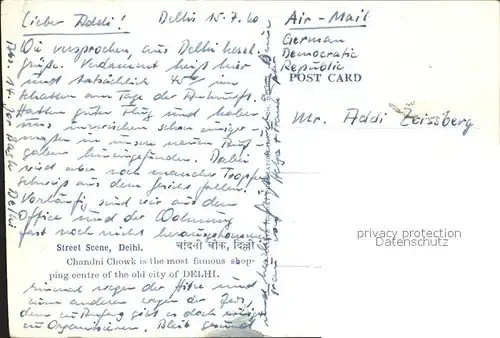 Lieber Addi! Delhi 15.7.60
Wie versprochen, aus Delhi herzl.
Grüße. Verdammt heiß hier
und tatsächlich 40° im
Schatten am Tage der Ankunft.
Hatten guten Flug und haben
uns inzwischen schon einiger-
maßen in unsere neuen Auf-
gaben hineingefunden. Dabei
wird aber noch mancher Tropfen
Schweiß aus dem fallen.
Vorläufig sind wir aus dem
Office und der Wohnung
fast noch nicht herausgekommen
Street Scene, Delhi. चांदनी चौक, दिल्ली
Chandni Chowk is the most famous shop-
ping centre of the old city of DELHI.
Einmal wegen der Hitze und
zum anderen wegen der Zeit,
denn zu Anfang gibt es doch einiges
zu organisieren. Bleib gesund
und
Air-Mail
German
Democratic
Republic
POST CARD
Mr. Addi Zeissberg
privacy overlay
my-serviceshop.com
Delhi